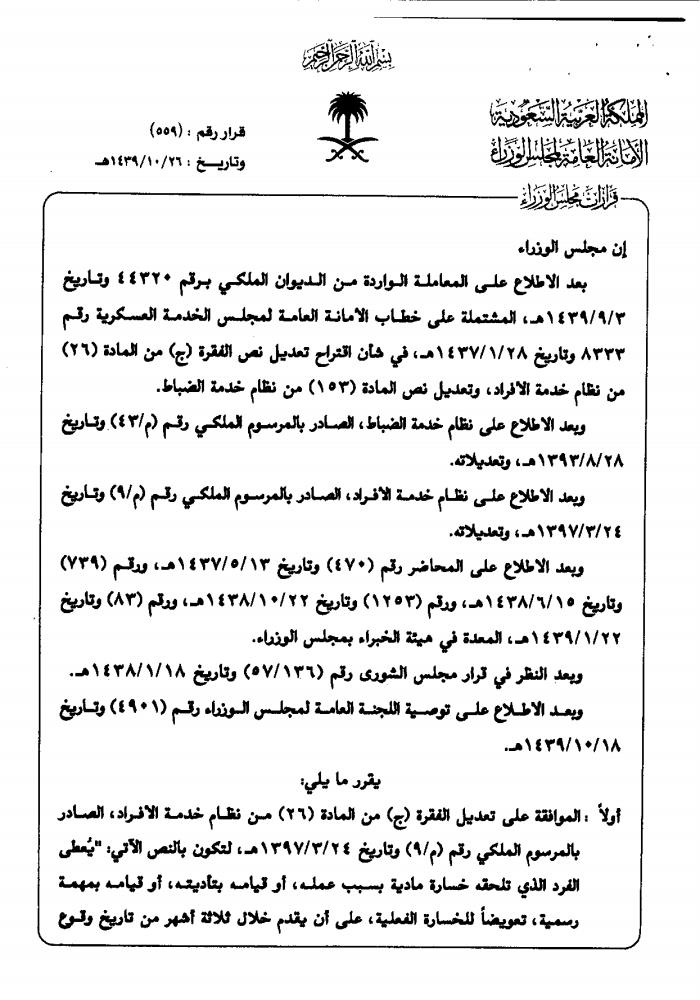 بسم الله الرحمن الرحيم
المملكة العربية السعودية
الأمانة العامة لمجلس الوزراء
قرار رقم : (٥٥٩)
وتاريخ : ١٤٣٩/١٠/٢٦هـ
قرارات مجلس الوزراء
إن مجلس الوزراء
بعد الاطلاع على المعاملة الواردة من الديوان الملكي برقم ٤٤٣٢٠ وتاريخ
١٤٣٩/٩/٣هـ، المشتملة على خطاب الأمانة العامة لمجلس الخدمة العسكرية رقم
٨٣٣٣ وتاريخ ١٤٣٧/١/٢٨هـ، في شأن اقتراح تعديل نص الفقرة (ج) من المادة (٢٦)
من نظام خدمة الأفراد، وتعديل نص المادة (١٥٣) من نظام خدمة الضباط.
وبعد الاطلاع على نظام خدمة الضباط، الصادر بالمرسوم الملكي رقم (م/٤٣) وتاريخ
١٣٩٣/٨/٢٨هـ، وتعديلاته.
وبعد الاطلاع على نظام خدمة الأفراد، الصادر بالمرسوم الملكي رقم (م/٩) وتاريخ
١٣٩٧/٣/٢٤هـ، وتعديلاته.
وبعد الاطلاع على المحاضر رقم (٤٧٠) وتاريخ ١٤٣٧/٥/١٣هـ، ورقم (٧٣٩)
وتاريخ ١٤٣٨/٦/١٥هـ، ورقم (١٢٥٣) وتاريخ ١٤٣٨/١٠/٢٢هـ، ورقم (٨٣) وتاريخ
١٤٣٩/١/٢٢هـ، المعدة في هيئة الخبراء بمجلس الوزراء.
وبعد النظر في قرار مجلس الشورى رقم (٥٧/١٣٦) وتاريخ ١٤٣٨/١/١٨هـ.
وبعد الاطلاع على توصية اللجنة العامة لمجلس الوزراء رقم (٤٩٠١) وتاريخ
١٤٣٩/١٠/١٨هـ.
يقرر ما يلي:
أولاً : الموافقة على تعديل الفقرة (ج) من المادة (٢٦) من نظام خدمة الأفراد، الصادر
بالمرسوم الملكي رقم (م/٩) وتاريخ ١٣٩٧/٣/٢٤هـ، لتكون بالنص الآتي: "يُعطى
الفرد الذي تلحقه خسارة مادية بسبب عمله، أو قيامه بتأديته، أو قيامه بمهمة
رسمية، تعويضاً للخسارة الفعلية، على أن يقدم خلال ثلاثة أشهر من تاريخ وقوع